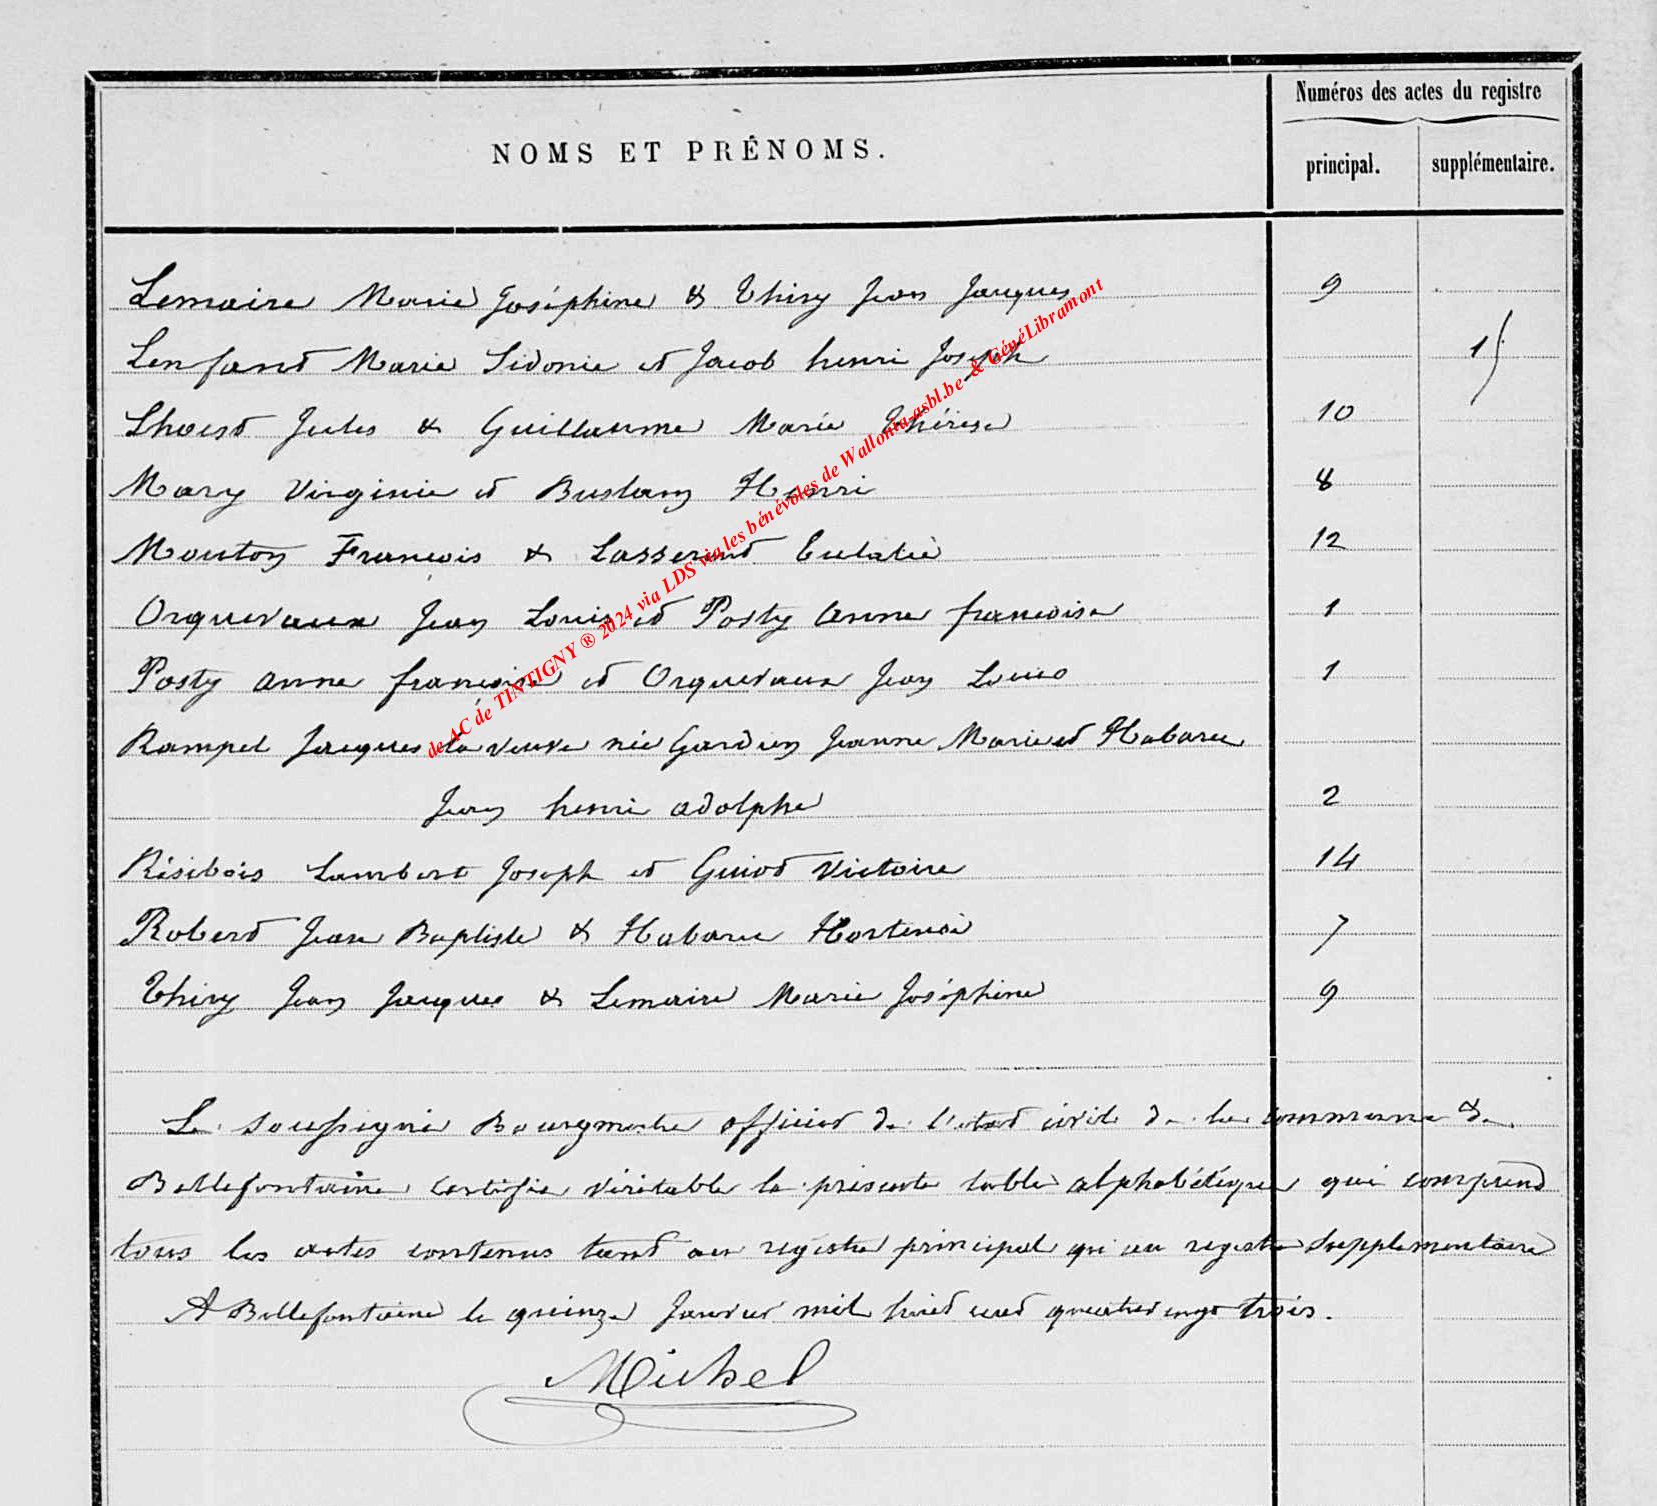 Numéros des actes du registre
NOMS ET PRÉNOMS.
principal. supplémentaire.
Lemaire Marie Joséphine & Thiry Jean Jacques 9
Lenfant Marie Sidonie et Jacob henri Joseph 1
Lhoist Jules & Guillaume Marie Thérèse 10
Mary Virginie et Buslain Henri 8
Mouton François & Lasserand Eulalie 12
Orquevaux Jean Louis et Posty Anne françoise 1
Posty Anne françoise et Orquevaux Jean Louis 1
Rampel Jacques la veuve née Gardien Jeanne Marie et Habaru
Jean henri adolphe 2
Résibois Lambert Joseph et Guiot Victoire 14
Robert Jean Baptiste & Habaru Hortense 7
Thiry Jean Jacques & Lemaire Marie Joséphine 9
Le soussigné Bourgmestre officier de l'état civil de la commune de
Bellefontaine certifie véritable la présente table alphabétique qui comprend
tous les actes contenus tant au registre principal qu'au registre supplémentaire
A Bellefontaine le quinze Janvier mil huit cent quatre vingt trois.
Michel
de AC de TINTIGNY ® 2024 via LDS via les bénévoles de Wallonia-asbl.be & GénéLibramont